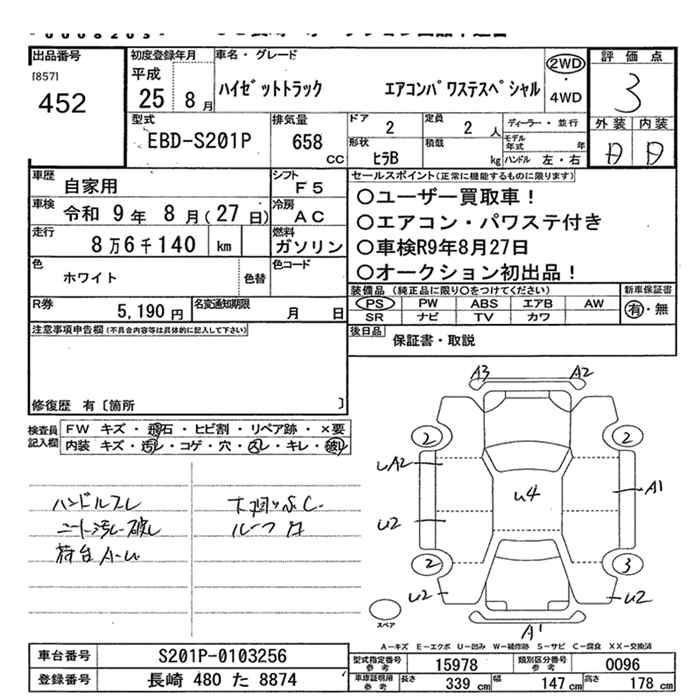 出品番号
[857]
452
初度登録年月
平成
25 8月
車名・グレード
ハイゼットトラック エアコンパワステスペシャル
2WD
・
4WD
評価点
3
外装 内装
型式
EBD-S201P
排気量
658
cc
ドア
2
定員
2 人
ディーラー・並行
形状
ヒラB
積載
kg
モデル年式 年
ハンドル 左・右
車歴
自家用
シフト
F5
車検
令和 9年 8月(27日)
冷房
AC
走行
8万6千140 km
燃料
ガソリン
色
ホワイト
色替
色コード
R券
5,190円
名変通知期限
月 日
セールスポイント(正常に機能するものに限ります)
○ユーザー買取車!
○エアコン・パワステ付き
○車検R9年8月27日
○オークション初出品!
装備品(純正品に限り○をつけてください)
新車保証書
PS PW ABS エアB AW
SR ナビ TV カワ
有・無
後日品
保証書・取説
注意事項申告欄(不具合内容等は具体的に記入して下さい)
修復歴 有〔箇所 〕
検査員
記入欄
FW キズ・飛石・ヒビ割・リペア跡・×要
内装 キズ・汚レ・コゲ・穴・スレ・キレ・破レ
ハンドルスレ
シート汚レ破レ
荷台A-U
ルーフ
A3 A2
2 2
UA2
U4
A1
U2
2 3
U2 U2
A1
スペア
A-キズ E-エクボ U-凹み W-補修跡 S-サビ C-腐食 XX-交換済
車台番号
S201P-0103256
登録番号
長崎 480 た 8874
型式指定番号
参考
15978
類別区分番号
参考
0096
車庫証明用
参考
長さ 339 cm 幅 147 cm 高さ 178 cm